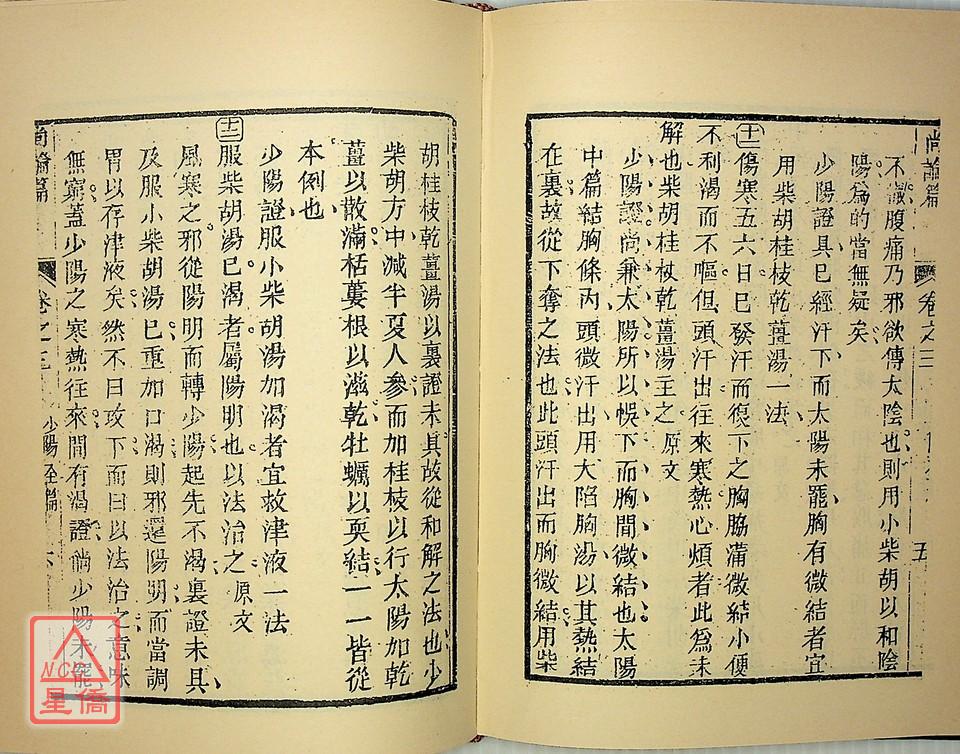 尚論篇 卷之三 五
不戢腹痛乃邪欲傳太陰也則用小柴胡以和陰
陽為的當無疑矣
少陽證具已經汗下而太陽未罷胸有微結者宜
用柴胡桂枝乾薑湯一法
十一 傷寒五六日已發汗而復下之胸脇滿微結小便
不利渴而不嘔但頭汗出往來寒熱心煩者此為未
解也柴胡桂枝乾薑湯主之 原文
少陽證尚兼太陽所以悞下而胸間微結也太陽
中篇結胸條內頭微汗出用大陷胸湯以其熱結
在裏故從下奪之法也此頭汗出而胸微結用柴
胡桂枝乾薑湯以裏證未具故從和解之法也少
柴胡方中減半夏人參而加桂枝以行太陽加乾
薑以散滿栝蔞根以滋乾牡蠣以耎結一一皆從
本例也
少陽證服小柴胡湯加渴者宜救津液一法
十二 服柴胡湯已渴者屬陽明也以法治之 原文
風寒之邪從陽明而轉少陽起先不渴裏證未具
及服小柴胡湯已重加口渴則邪還陽明而當調
胃以存津液矣然不曰攻下而曰以法治之意味
無窮蓋少陽之寒熱往來間有渴證倘少陽未罷
尚論篇 卷之三 少陽全篇 六
NCC
星僑